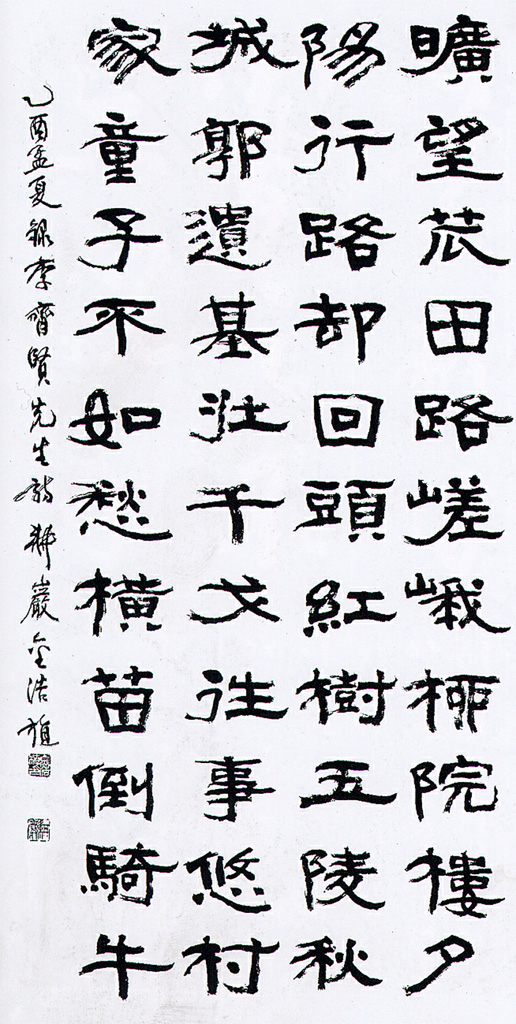 曠望荒田路嵯峨柳院樓夕
陽行路却回頭紅樹五陵秋
城郭遺基壯千戈往事悠村
家童子不如愁橫苗倒騎牛
乙酉孟夏錄李齊賢先生詩耕巖金浩植